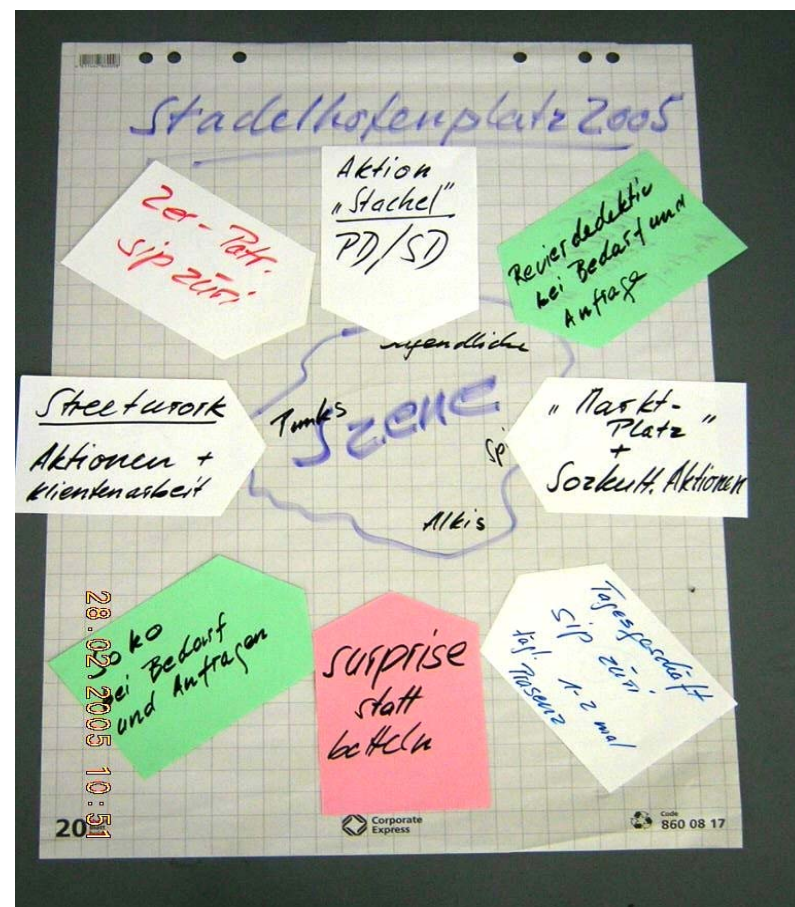 Stadelhofenplatz 2005
2er-Patr.
sip züri
Aktion
"Stachel"
PD/SD
Revierdedektiv
bei Bedarf und
Anfrage
Jugendliche
Szene
Punks
Sp
Alkis
Streetwork
Aktionen +
Klientenarbeit
"Markt-
Platz"
+
Sozkult. Aktionen
Soko
bei Bedarf
und Anfragen
surprise
statt
betteln
Tagesgeschäft
sip züri
tägl. 1-2 mal
Präsenz
28.02.2005 10:51
20
Corporate
Express
Code
860 08 17